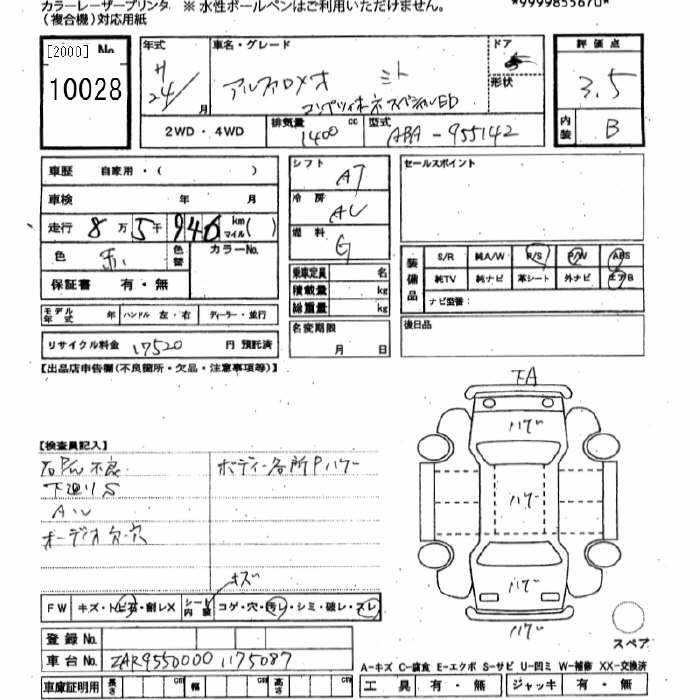 カラーレーザープリンタ ※ 水性ボールペンはご利用いただけません。
(複合機)対応用紙
*999985567U*
[2000] No
10028
年式 H24/ 月
車名・グレード アルファロメオ ミト
コンペティツィオーネスペシャルED
ドア
形状
評価点 3.5
内装 B
2WD・4WD
排気量 1400 cc
型式 ABA-955142
車歴 自家用・( )
車検 年 月
走行 8万5千946 km マイル( )
色 赤
色替
カラーNo.
保証書 有・無
シフト AT
冷房 AC
燃料 G
乗車定員 名
積載量 kg
総重量 kg
名変期限 月 日
セールスポイント
装備品
S/R 純A/W P/S P/W ABS
純TV 純ナビ 革シート 外ナビ エアB
ナビ型番:
後日品
モデル年式 年 ハンドル 左・右 ディーラー・並行
リサイクル料金 17520 円 預託済
【出品店申告欄(不良箇所・欠品・注意事項等)】
【検査員記入】
右P/W不良
下廻りS
オーディオ欠・穴
ボディー各所Pハゲー
FA
ハゲー
ハゲー
ハゲー
ハゲー
キズ
FW キズ・トビ石・割レX
シート内装 コゲ・穴・汚レ・シミ・破レ・スレ
スペア
登録 No.
車台 No. ZAR95500001175087
A-キズ C-腐食 E-エクボ S-サビ U-凹ミ W-補修 XX-交換済
車庫証明用 長さ cm 幅 cm 高さ cm
工具 有・無 ジャッキ 有・無